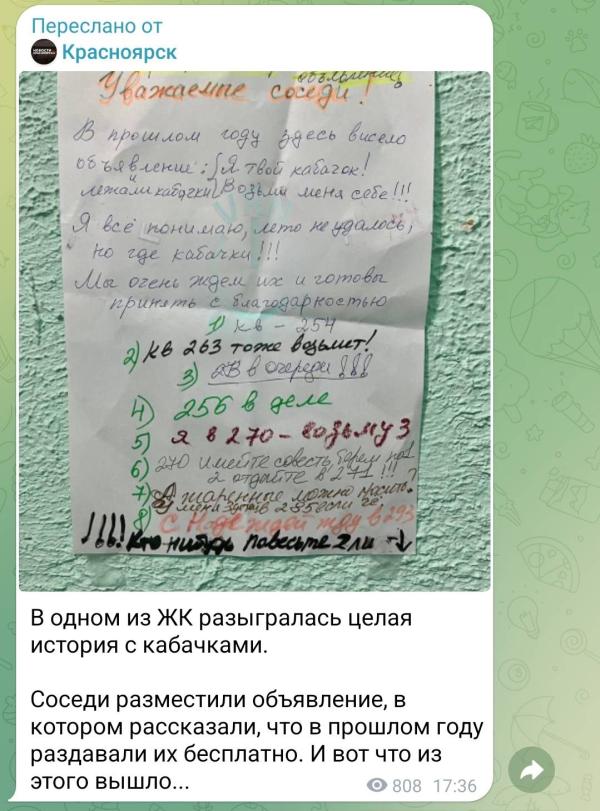 Переслано от
Красноярск
Уважаемые соседи!
В прошлом году здесь висело
объявление: "Я твой кабачок!
и
лежали кабачки Возьми меня себе!!!
Я всё понимаю, лето не удалось,
но где кабачки!!!
Мы очень ждем их и готовы
принять с благодарностью
1) кв - 254
2) кв 263 тоже возьмет!
3) в очереди!!!
4) 256 в деле
5) Я в 270 - возьму 3
6) 270 имейте совесть, берем по 1
2 отдайте в 271!!!
7) А жаренные можно просить?
8 С Надеждой жду в 293
!!!! Кто нибудь повесьте 2 ли →
В одном из ЖК разыгралась целая
история с кабачками.
Соседи разместили объявление, в
котором рассказали, что в прошлом году
раздавали их бесплатно. И вот что из
этого вышло...
808 17:36